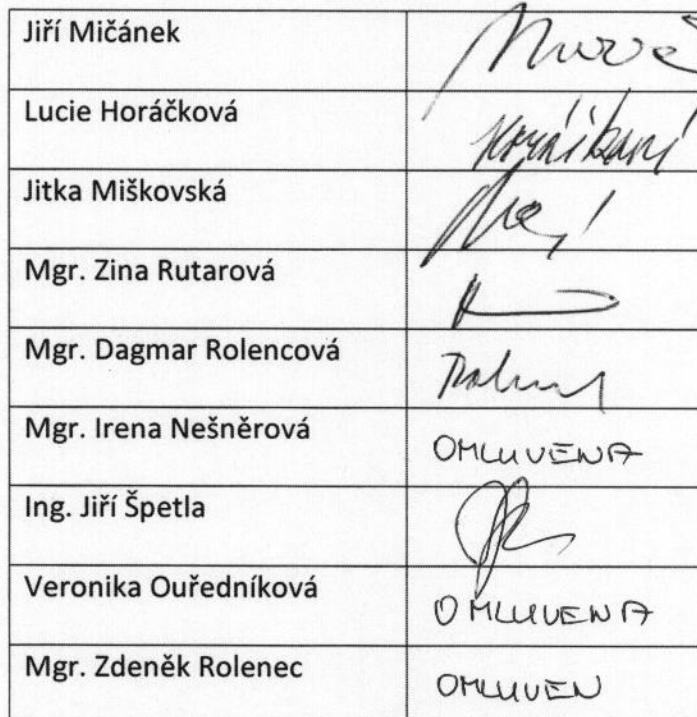 Jiří Mičánek
Lucie Horáčková
Jitka Miškovská
Mgr. Zina Rutarová
Mgr. Dagmar Rolencová
Mgr. Irena Nešněrová OMLUVENA
Ing. Jiří Špetla
Veronika Ouředníková OMLUVENA
Mgr. Zdeněk Rolenec OMLUVEN